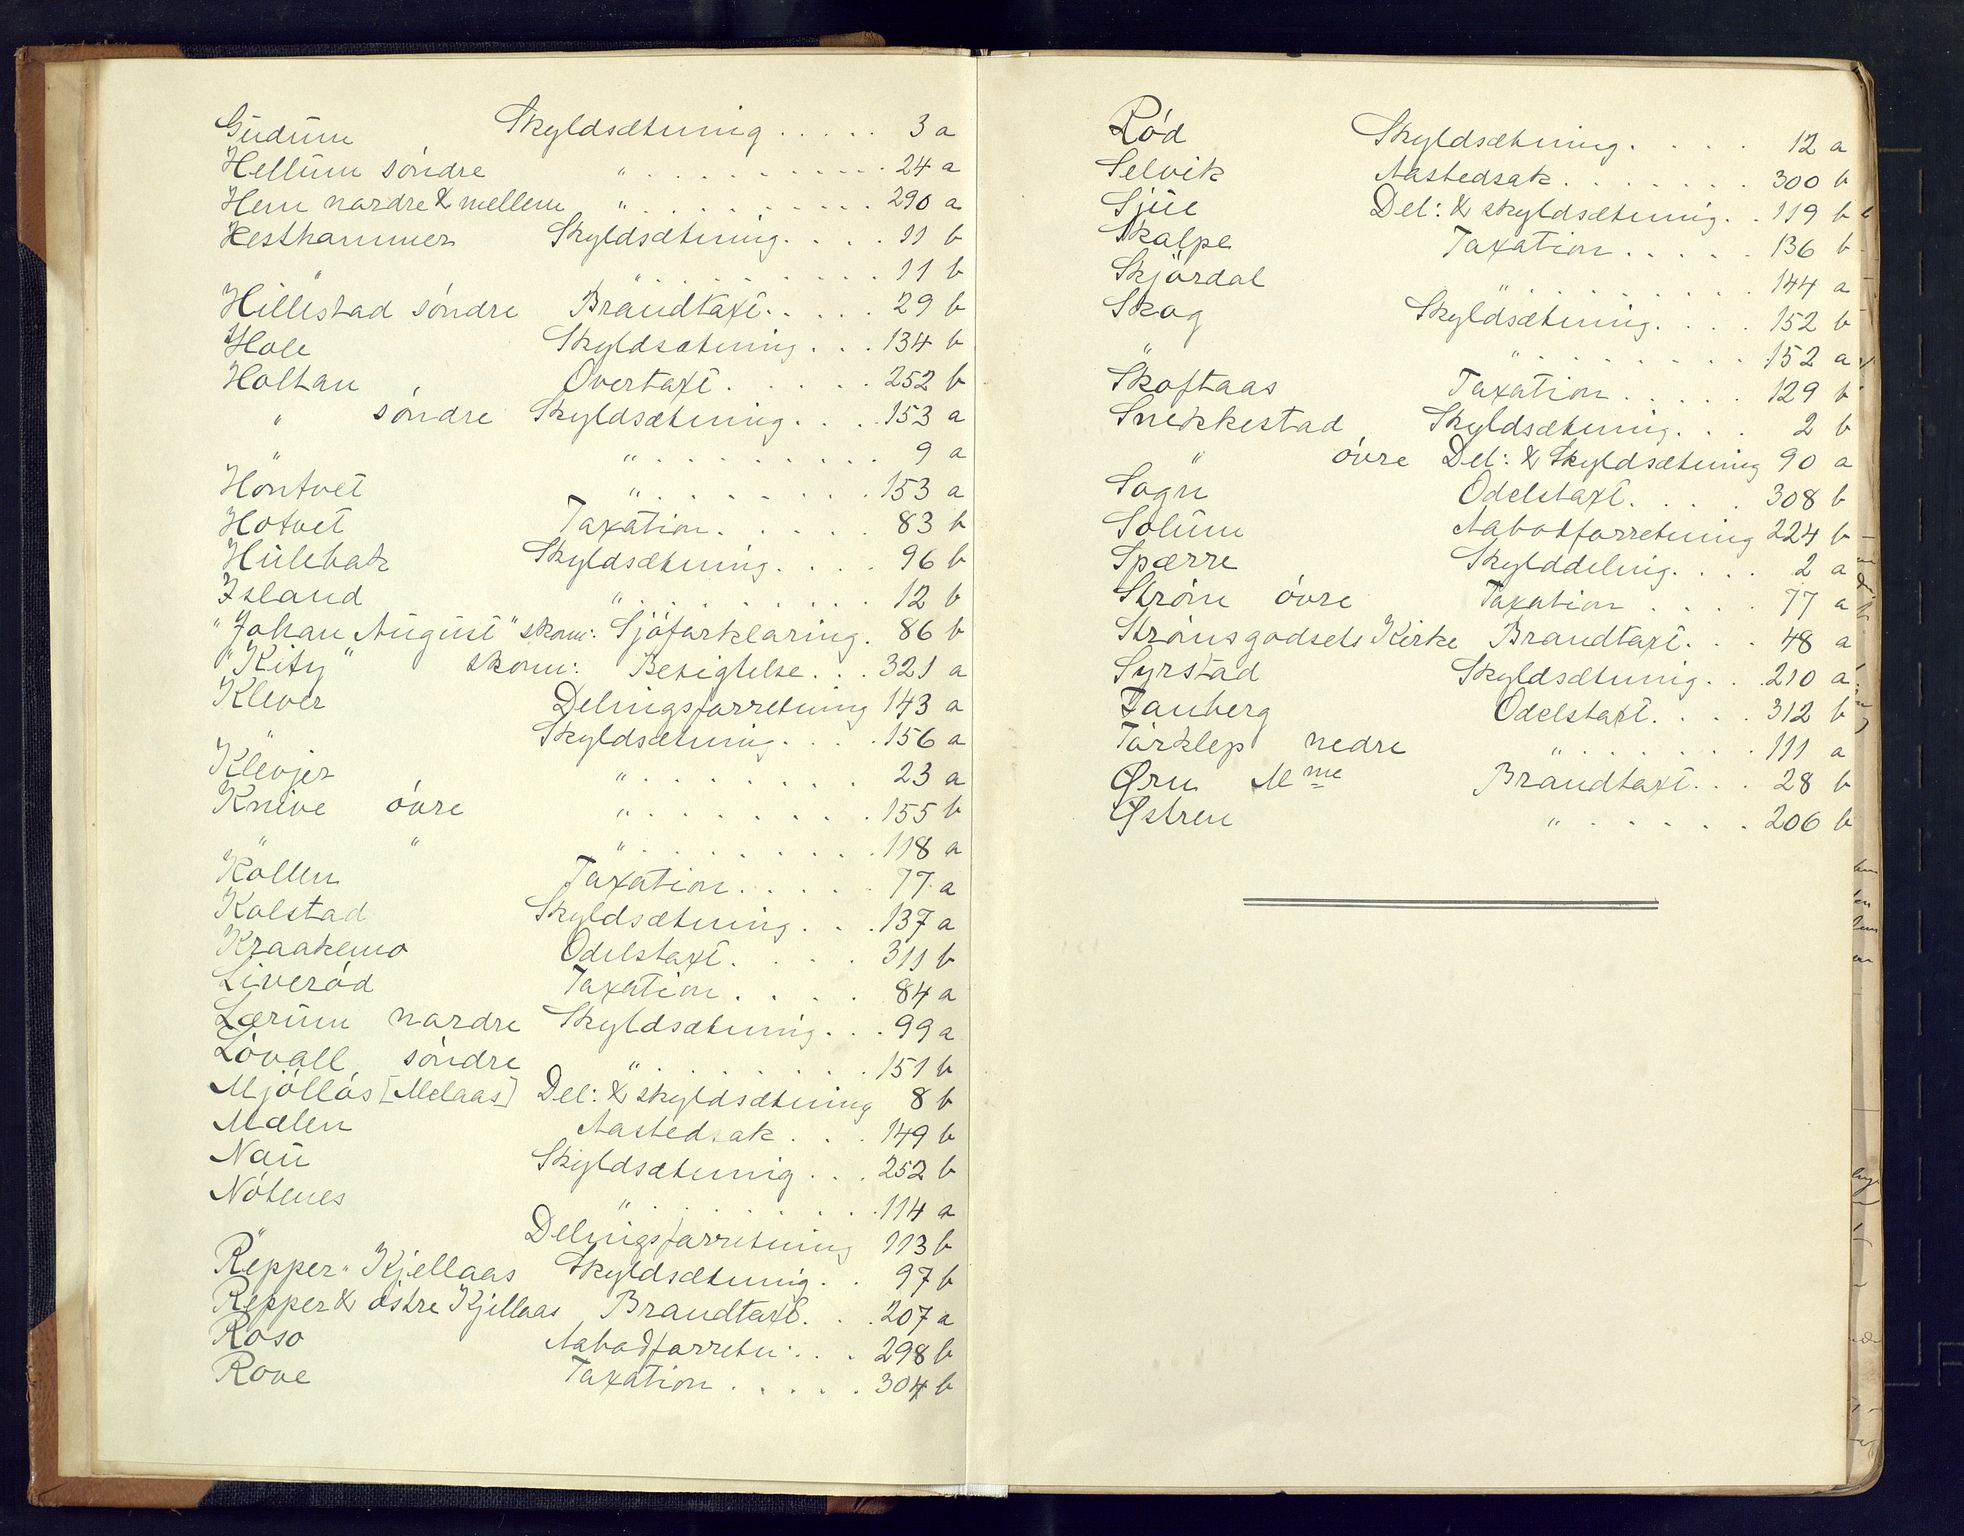 Gudum Skyldsætning . . . . . 3 a
Hellum söndre " . . . . . . . . . . . 24 a
Hem nordre & mellem " . . . . . . . . . . . 290 a
Hesthammer Skyldsætning . . . . 11 b
" " . . . . . . . . . . 11 b
Hillestad söndre Brandtaxt . . . . . 29 b
Hole Skyldsætning . . . 134 b
Holtan Overtaxt . . . . . 252 b
" söndre Skyldsætning . . . . 153 a
" " . . . . . . . . . . 9 a
Höntvet " . . . . . . . . 153 a
Hotvet Taxation . . . . . 83 b
Hulebak Skyldsætning . . . . 96 b
Island " . . . . . . . . . . 12 b
"Johan August" skonn: Sjöforklaring . 86 b
"Kity" skonn: Besigtelse . . . 321 a
Klever Delingsforretning 143 a
" Skyldsætning . . . . 156 a
Klevjer " . . . . . . . . 23 a
Knive övre " . . . . . . . . 155 b
" " " . . . . . . . . . 118 a
Kollen Taxation . . . . . 77 a
Kolstad Skyldsætning . . . 137 a
Kraakemo Odelstaxt . . . . 311 b
Liveröd Taxation . . . . 84 a
Lærum nordre Skyldsætning . . . 99 a
Lövall söndre " . . . . . . . . 151 b
Mjöllös [Melaas] Del: & skyldsætning 8 b
Mælen Aastedsak . . . 149 b
Nau Skyldsætning . . . 252 b
Nötenes " . . . . . . . . . 114 a
" Delingsforretning 113 b
Repper Kjellaas Skyldsætning . . 97 b
Repper & östre Kjellaas Brandtaxt . . . 207 a
Roso Aabodforretn: . . . 298 b
Rove Taxation . . . . . 304 b
Röd Skyldsætning . . . . 12 a
Selvik Aastedsak . . . . . . . 300 b
Sjue Del: & skyldsætning . . 119 b
Skalpe Taxation . . . . . 136 b
Skjördal " . . . . . . . . . 144 a
Skog Skyldsætning . . . . 152 b
" " . . . . . . . . . 152 a
Skoftaas Taxation . . . . . 129 b
Snekkestad Skyldsætning . . . 2 b
" övre Del: & Skyldsætning 90 a
Sogn Odelstaxt . . . . 308 b
Solum Aabodforretning 224 b
Spærre Skylddeling . . . . 2 a
Ström övre Taxation . . . . 77 a
Strömsgodsets Kirke Brandtaxt . . . 48 a
Syrstad Skyldsætning . . . 210 a
Tanberg Odelstaxt . . . . 312 b
Törklep nedre " . . . . . . . . 111 a
Ørn Mme Brandtaxt . . . 28 b
Østren " . . . . . . 206 b